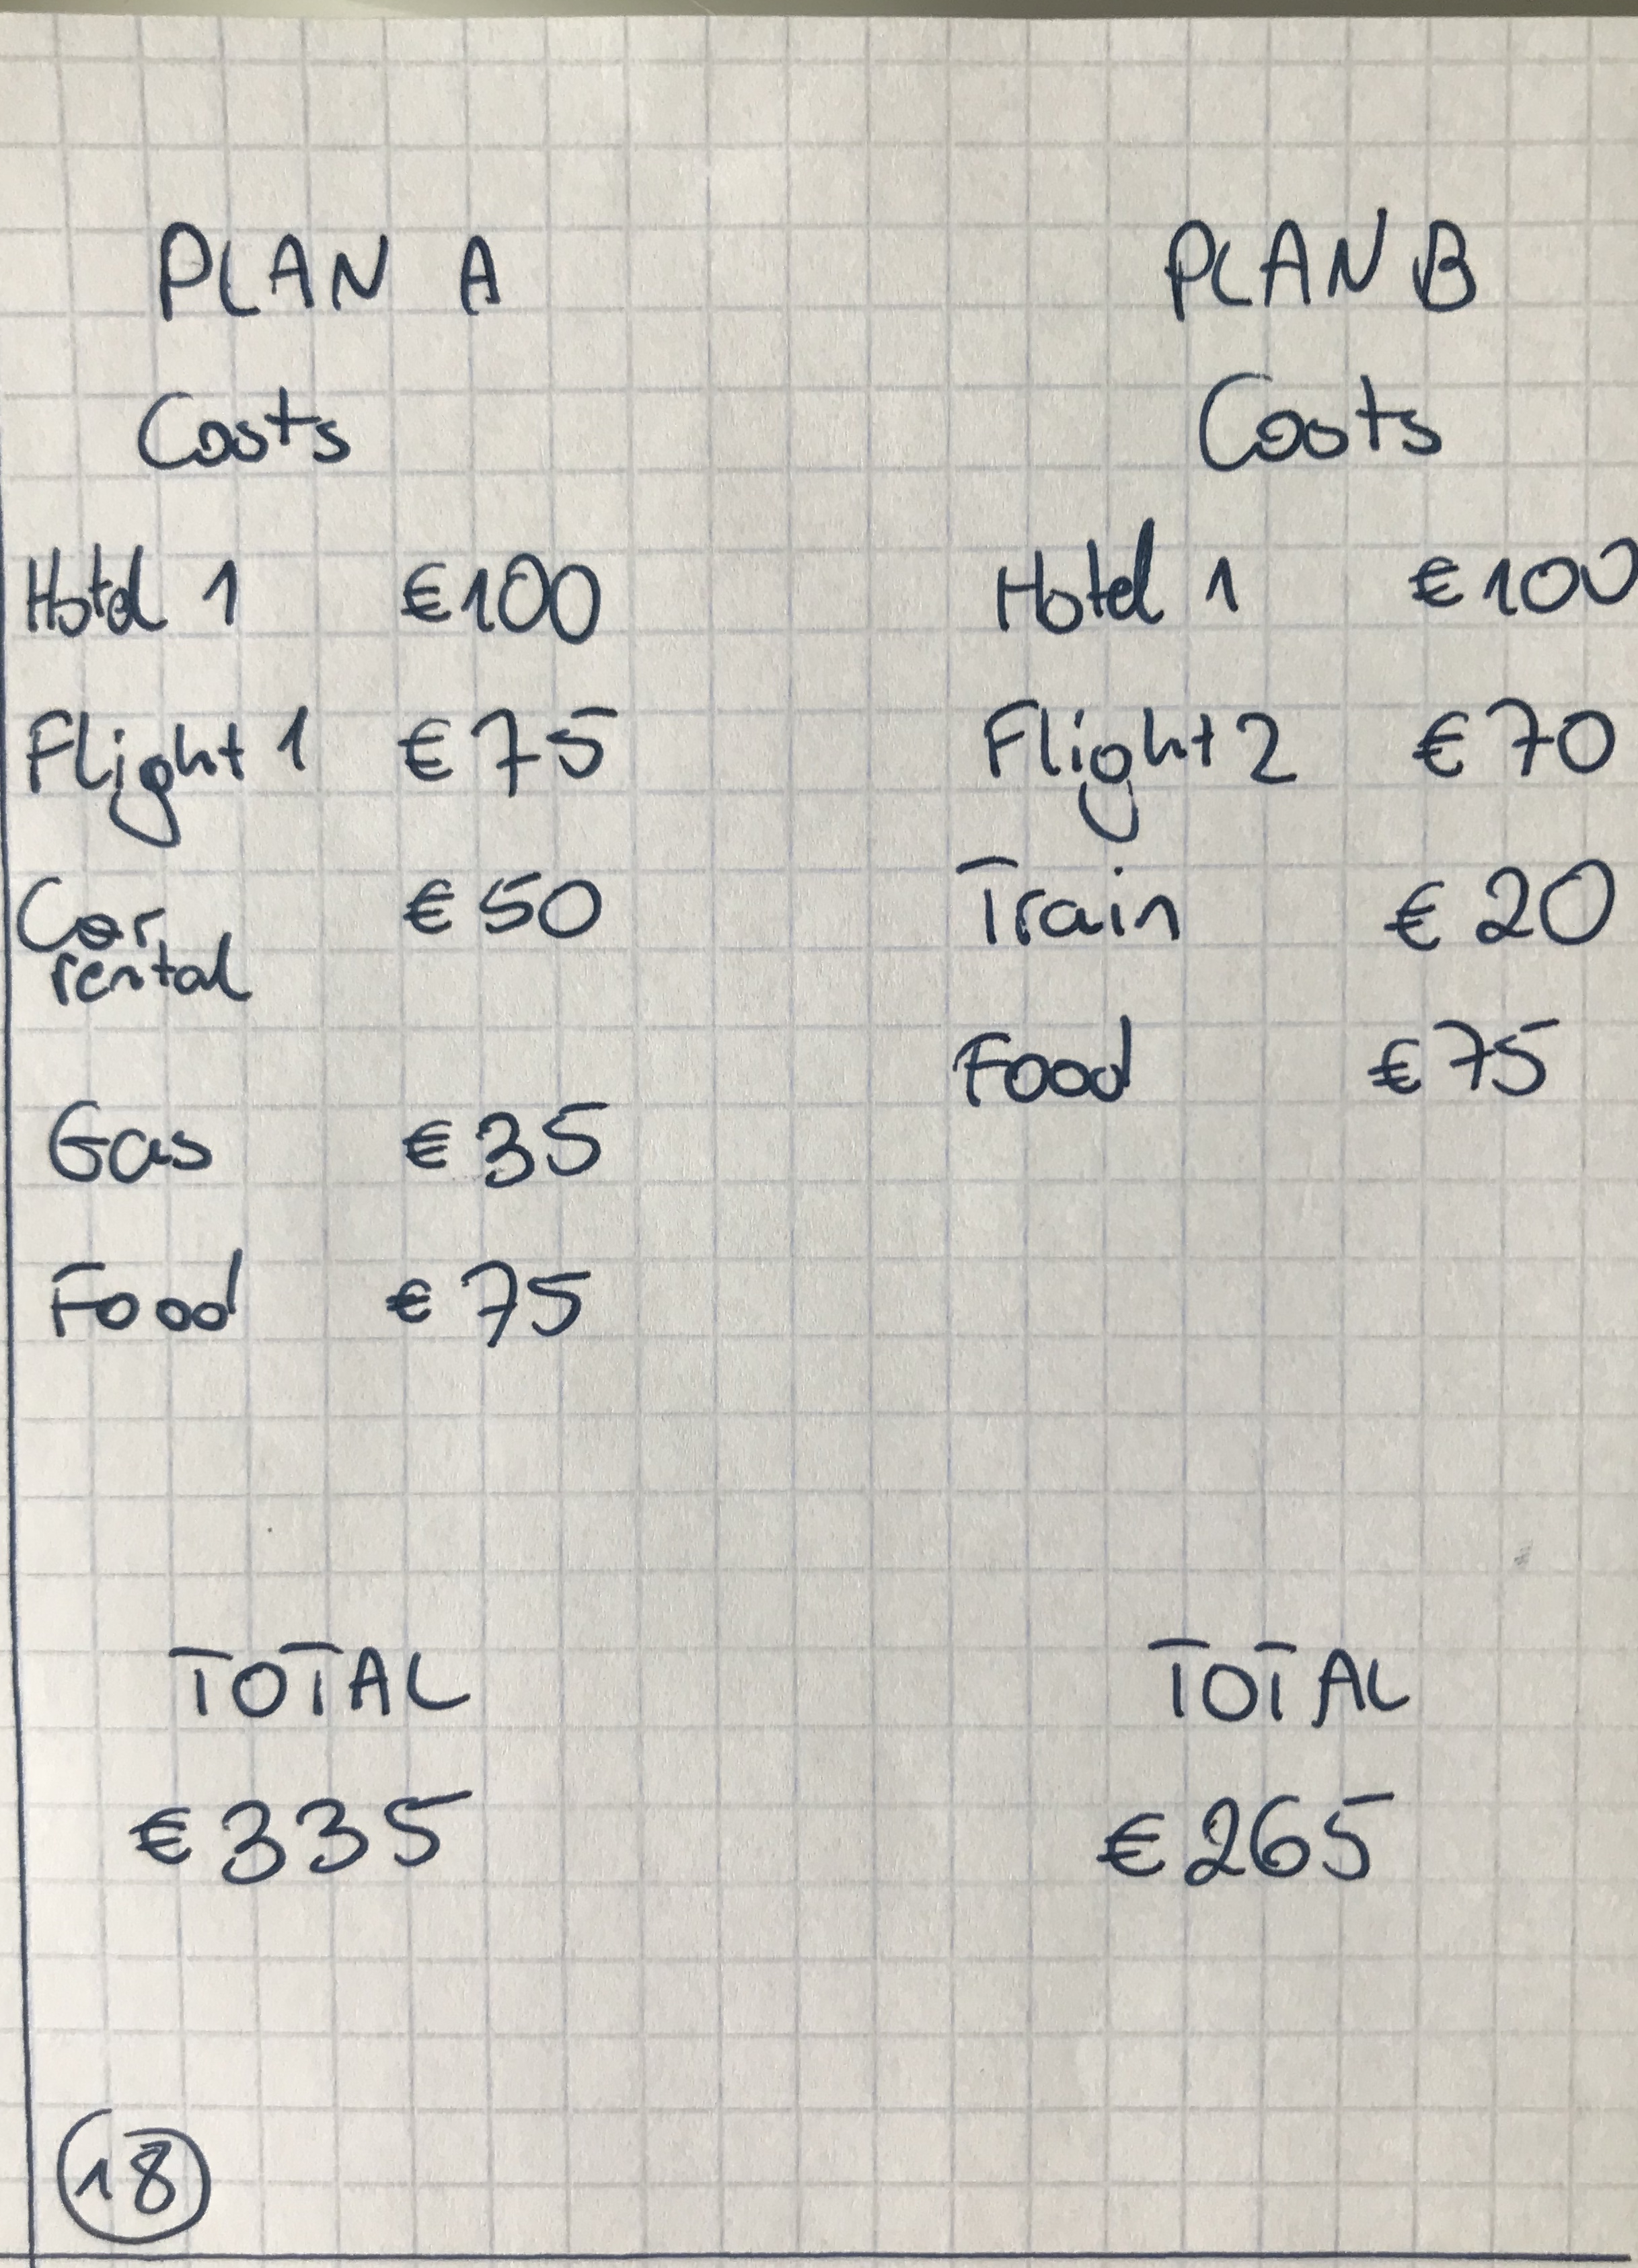 PLAN A
Costs
Hotel 1 €100
Flight 1 €75
Car rental €50
Gas €35
Food €75
TOTAL
€335
PLAN B
Costs
Hotel 1 €100
Flight 2 €70
Train €20
Food €75
TOTAL
€265
18